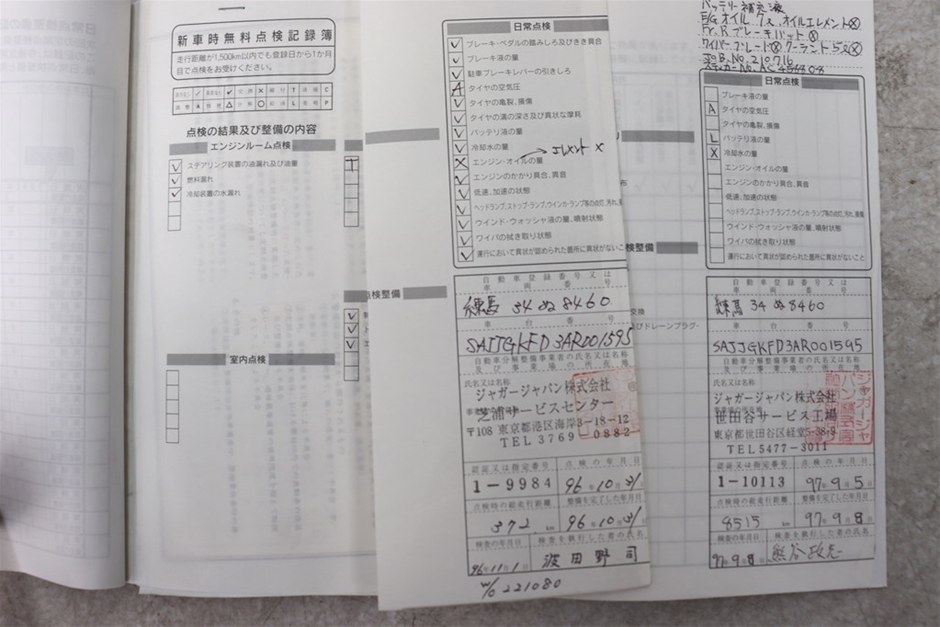 新車時無料点検記録簿
走行距離が1,500km以内でも登録日から1か月
目で点検をお受けください。
点検の結果及び整備の内容
エンジンルーム点検
ステアリング装置の油漏れ及び油量
燃料漏れ
冷却装置の水漏れ
室内点検
点検整備
日常点検
ブレーキ・ペダルの踏みしろ及びきき具合
ブレーキ液の量
駐車ブレーキレバーの引きしろ
タイヤの空気圧
タイヤの亀裂、損傷
タイヤの溝の深さ及び異状な摩耗
バッテリ液の量
冷却水の量
エンジン・オイルの量
エレメント X
エンジンのかかり具合、異音
低速、加速の状態
ヘッドランプ、ストップ・ランプ、ウインカ・ランプ等の点灯、汚れ、損傷
ウインド・ウォッシャ液の量、噴射状態
ワイパの拭き取り状態
運行において異状が認められた箇所に異状がないこと
自動車登録番号又は
車両番号
練馬 34 ぬ 8460
車台番号
SAJJGKFD3AR001595
自動車分解整備事業者の氏名又は名称
及び事業場の所在地
氏名又は名称
ジャガージャパン株式会社
芝浦サービスセンター
〒108 東京都港区海岸3-18-12
TEL3769 0882
認証又は指定番号
点検の年月日
1-9984
96年10月31日
点検時の総走行距離
整備を完了した年月日
372 km
96年10月31日
検査の年月日
検査を執行した者の氏名
96年11月1日
波田野 司
W/O 221080
バッテリー補充液
E/G オイル 7.2, オイルエレメントX
Fr, R ブレーキパット X
日常点検
ブレーキ液の量
タイヤの空気圧
タイヤの亀裂、損傷
バッテリ液の量
冷却水の量
エンジン・オイルの量
エンジンのかかり具合、異音
低速、加速の状態
ヘッドランプ、ストップ・ランプ、ウインカ・ランプ等の点灯、汚れ、損傷
ウインド・ウォッシャ液の量、噴射状態
ワイパの拭き取り状態
運行において異状が認められた箇所に異状がないこと
点検整備
交換
及びドレーンプラグ・
自動車登録番号又は
車両番号
練馬 34 ぬ 8460
車台番号
SAJJGKFD3AR001595
自動車分解整備事業者の氏名又は名称
及び事業場の所在地
氏名又は名称
ジャガージャパン株式会社
世田谷サービス工場
東京都世田谷区経堂5-38-9
TEL5477-3011
認証又は指定番号
点検の年月日
1-10113
97年9月5日
点検時の総走行距離
整備を完了した年月日
8515 km
97年9月8日
検査の年月日
検査を執行した者の氏名
97年9月8日